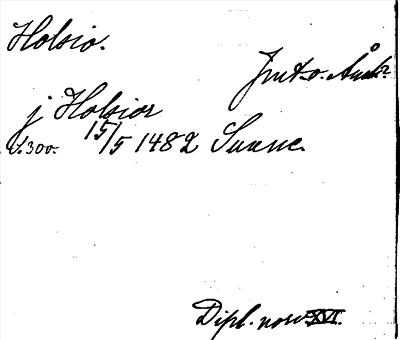 Holsio.
Jmt. o. Ång.
j Holsior
S. 300. 15/5 1482 Sunne.
Dipl. norv. XVI.